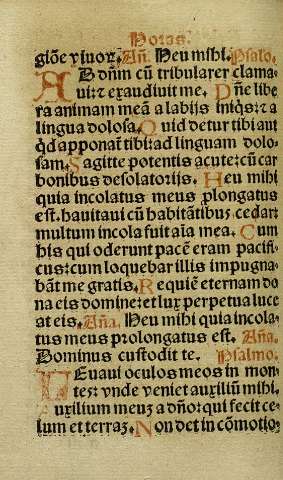 Horas.
giõe ꝛ iuoꝛ. Añ. Heu mihi. Psalo.
AD dñm cũ tribularer clama
ui: ꝛ exaudiuit me. Dñe libe
ra animam meã a labijs iniqs: ꝛ a
lingua dolosa. Quid detur tibi aut
qd apponant̃ tibi: ad linguam dolo
sam. Sagitte potentis acute: cũ car
bonibus desolatorijs. Heu mihi
quia incolatus meus ꝓlongatus
est. hauitaui cũ habitãtibus cedar:
multum incola fuit aĩa mea. Cum
his qui oderunt pacẽ eram pacifi
cus: cum loquebar illis impugna
bãt me gratis. Requiẽ eternam do
na eis domine: et lux perpetua luce
at eis. Aña. Heu mihi quia incola
tus meus prolongatus est. Aña.
Dominus custodit te. Psalmo.
LEuaui oculos meos in mon
tes: vnde veniet auxiliũ mihi.
Auxilium meuꝫ a dño: qui fecit ce
lum et terraꝫ. Non det in cõmotio